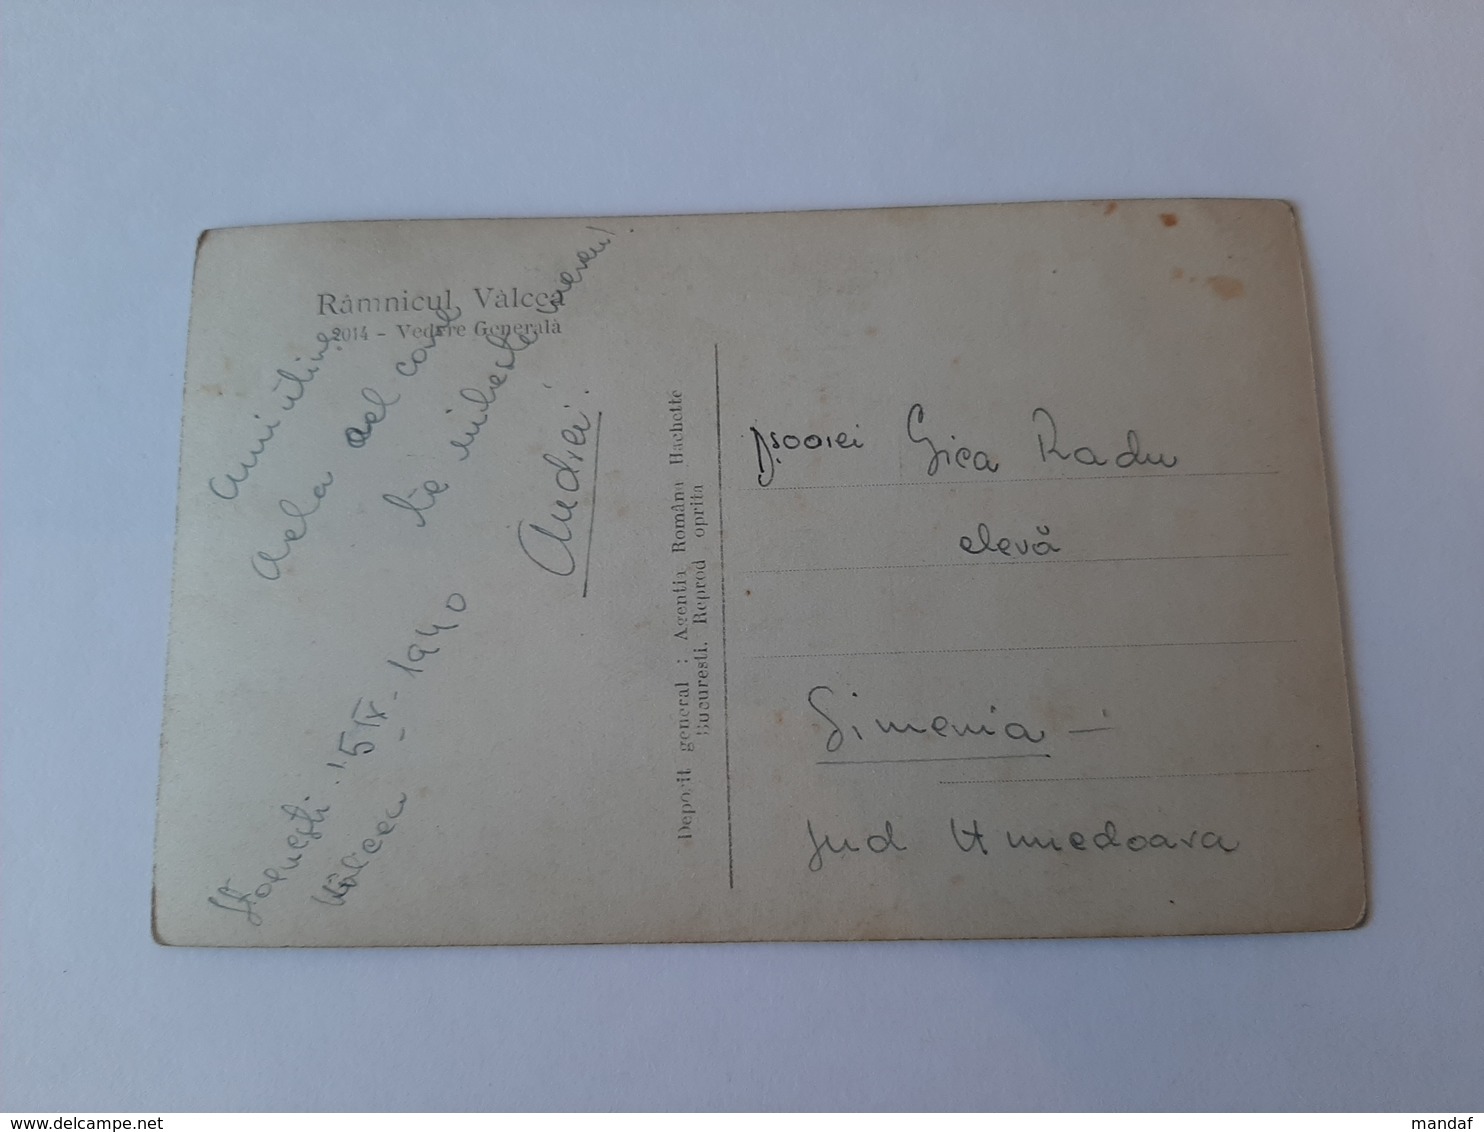 Râmnicul Vâlcea
2014 - Vedere Generală
Amintire
dela cel care
te iubeste mereu!
Andrei!
Stoenești 15 IX - 1940
Vâlcea -
Depozit general : Agentia Română Hachette
Bucuresti. Reprod oprita
D;șoarei Gica Radu
elevă
Simeria -
Jud Hunedoara
delcampe.net
mandaf